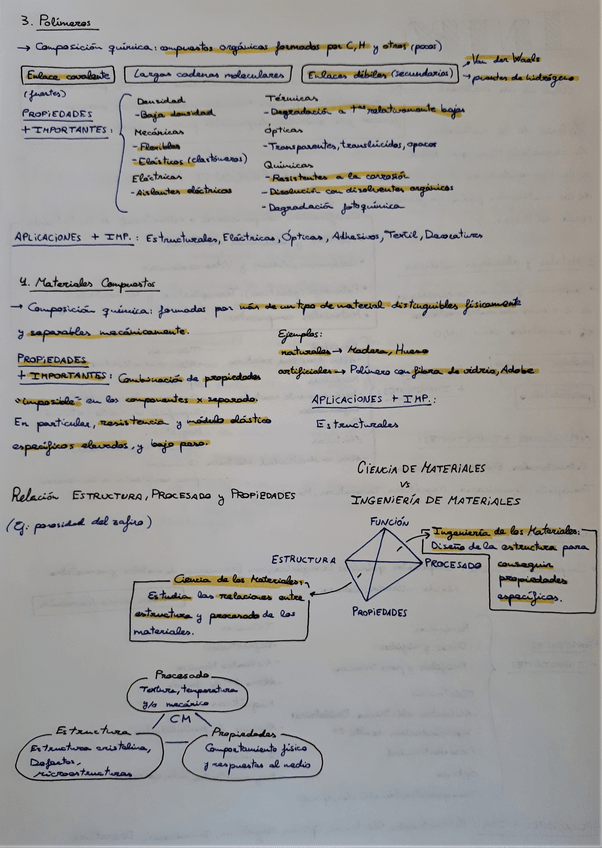 3. Polímeros
→ Composición química: compuestos orgánicos formados por C, H y otros (pocos)
Enlace covalente
(fuertes)
Largas cadenas moleculares
Enlaces débiles (secundarios)
→ Van der Waals
→ puentes de hidrógeno
PROPIEDADES
+ IMPORTANTES:
Densidad
- Baja densidad
Mecánicas
- Flexibles
- Elásticos (elastómeros)
Eléctricas
- Aislantes eléctricos
Térmicas
- Degradación a tªs relativamente bajas
Ópticas
- Transparentes, translúcidos, opacos
Químicas
- Resistentes a la corrosión
- Disolución con disolventes orgánicos
- Degradación fotoquímica
APLICACIONES + IMP.: Estructurales, Eléctricas, Ópticas, Adhesivos, Textil, Decorativas
4. Materiales Compuestos
→ Composición química: formados por más de un tipo de material distinguibles físicamente
y separables mecánicamente.
PROPIEDADES
+ IMPORTANTES: Combinación de propiedades
"imposible" en los componentes x separado.
En particular, resistencia y módulo elástico
específicos elevados, y bajo peso.
Ejemplos:
naturales → Madera, Hueso
artificiales → Polímero con fibra de vidrio, Adobe
APLICACIONES + IMP.:
Estructurales
Relación ESTRUCTURA, PROCESADO y PROPIEDADES
(Ej: porosidad del zafiro)
CIENCIA DE MATERIALES
VS
INGENIERÍA DE MATERIALES
FUNCIÓN
ESTRUCTURA
PROCESADO
PROPIEDADES
Ingeniería de los Materiales:
Diseño de la estructura para
conseguir
propiedades
específicas.
Ciencia de los Materiales:
Estudia las relaciones entre
estructura y procesado de los
materiales.
Procesado
Textura, temperatura
y/o mecánico
CM
Estructura
Estructura cristalina,
Defectos,
microestructuras
Propiedades
Comportamiento físico
y respuestas al medio